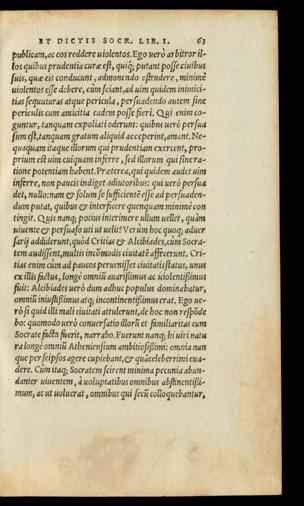 ET DICTIS SOCR. LIB. I. 63
publicam, ac eos reddere uiolentos. Ego uerò arbitror il-
los quibus prudentia curæ est, quiq́; putant posse ciuibus
suis, quæ eis conducunt, admonendo ostendere, minimè
uiolentos esse debere, cùm sciant, ad uim quidem inimici-
tias sequuturas atque pericula, persuadendo autem sine
periculis cum amicitia eadem posse fieri. Qui enim co-
guntur, tanquam expoliati oderunt: quibus uerò persua
sum est, tanquam gratum aliquid acceperint, amant. Ne-
quaquam itaque illorum qui prudentiam exercent, pro-
prium est uim cuiquam inferre, sed illorum qui sine ra-
tione potentiam habent. Præterea, qui quidem audet uim
inferre, non paucis indiget adiutoribus: qui uerò persua
det, nullo: nam & solum se sufficientē esse ad persuaden-
dum putat, quibus & interficere quenquam minimè con
tingit. Quis nanq; potius interimere ullum uellet, quàm
uiuente & persuaso uti ut uelit? Verùm hoc quoq; aduer
sarij addiderunt, quòd Critias & Alcibiades, cùm Socra-
tem audissent, multis incōmodis ciuitatē affecerunt. Cri-
tias enim cùm ad paucos peruenisset ciuitatis status, unus
ex illis factus, longè omniū auarissimus ac uiolentissimus
fuit: Alcibiades uerò dum adhuc populus dominabatur,
omniū iniustissimus atq; incontinentissimus erat. Ego ue-
rò si quid illi mali ciuitati attulerunt, de hoc non respōde
bo: quomodo uerò conuersatio illorū et familiaritas cum
Socrate facta fuerit, narrabo. Fuerunt nanq; hi uiri natu
ra longè omniū Atheniensium ambitiosissimi: omnia nan
que per seipsos agere cupiebant, & quàm celeberrimi eua-
dere. Cùm itaq; Socratem scirent minima pecunia abun-
danter uiuentem, à uoluptatibus omnibus abstinentissi-
mum, ac ut uoluerat, omnibus qui secū colloquebantur,